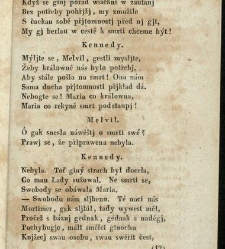 Když se giný pořád wstáti w zaufání
Bez potřeby pohřjžj, my zmužile
S čackau sobě přjtomnostj před nj gjt,
My gj herlau w cestě k smrti chceme být!
Kennedy.
Mýljte se, Melvil, gestli mysljte,
Žeby králowně nás bylo potřebj,
Aby stále pošla na smrt! Ona nám
Sama ducha přjtomného přjklad dá.
Nebogte se! Maria co králowna,
Maria co rekyně smrt podstaupj!
Melvil.
O gak snesla náwěštj o smrti swé?
Prawj se, že připrawena nebyla.
Kennedy.
Nebyla. Toť giný strach byl docela,
Co mau Lady sužowal. Ne smrti se,
Swobody se obáwala Maria.
— Swobodu nám sljbeno. Té noci nás
Mortimer, gak sljbil, tady wywest měl,
Pročež s bázuj gednak, gednak s naděgj,
Pochybugjc, malí smělci ginocha
Knjžecj swau osobu, swau swěřit čest,
(17)